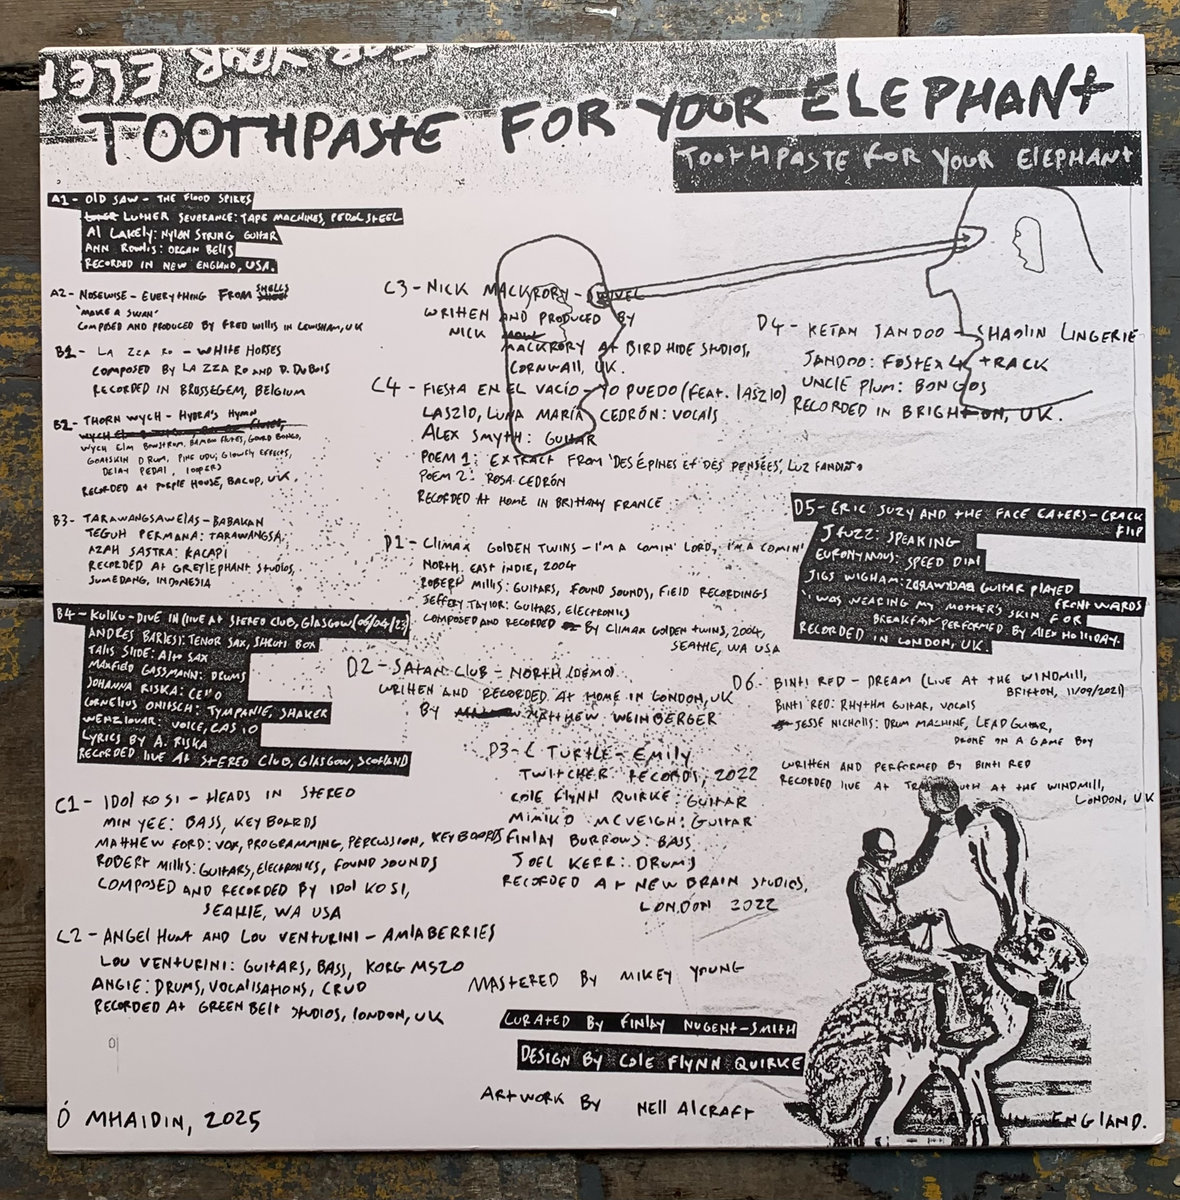 FOR YOUR ELE
TOOTHPASTE FOR YOUR ELEPHANT
TOOTHPASTE FOR YOUR ELEPHANT
A1 - OLD SAW - THE FLOOD SPIRES
LUTHER SEVERANCE: TAPE MACHINES, PEDAL STEEL
Al LAKELY: NYLON STRING GUITAR
ANN ROWLIS: ORGAN BELLS
RECORDED IN NEW ENGLAND, USA.
A2 - NOSEWISE - EVERYTHING FROM SHELLS
'MAKE A SWAN'
COMPOSED AND PRODUCED BY FRED WILLIS IN LEWISHAM, UK
B1 - LA ZZA RO - WHITE HORSES
COMPOSED BY LA ZZA RO AND D. DUBOIS
RECORDED IN BRUSSEGEM, BELGIUM
B2 - THORN WYCH - HYDRA'S HYMN
WYCH ELM BOWSTRUM, BAMBOO FLUTES, GOURD BONGO,
GOATSKIN DRUM, PINE UDU, GLOWFLY EFFECTS,
DELAY PEDAL, LOOPERS
RECORDED AT PURPLE HOUSE, BACUP, UK.
B3 - TARAWANGSAWELAS - BABAKAN
TEGUH PERMANA: TARAWANGSA,
AZAH SASTRA: KACAPI
RECORDED AT GREYLEPHANT STUDIOS,
SUMEDANG, INDONESIA
B4 - KULKU - DIVE IN (LIVE AT STEREO CLUB, GLASGOW (06/04/23)
ANDRES BARLESI: TENOR SAX, SHRUTI BOX
TALIS SLIDE: ALTO SAX
MAXFIELD GASSMANN: DRUMS
JOHANNA RISKA: CELLO
CORNELIUS ONITSCH: TYMPANIE, SHAKER
WENZLOVAR: VOICE, CASIO
LYRICS BY A. RISKA
RECORDED LIVE AT STEREO CLUB, GLASGOW, SCOTLAND
C1 - IDOL KO SI - HEADS IN STEREO
MIN YEE: BASS, KEYBOARDS
MATTHEW FORD: VOX, PROGRAMMING, PERCUSSION, KEYBOARDS
ROBERT MILLIS: GUITARS, ELECTRONICS, FOUND SOUNDS
COMPOSED AND RECORDED BY IDOL KO SI,
SEATTLE, WA USA
C2 - ANGEL HUNT AND LOU VENTURINI - AMLABERRIES
LOU VENTURINI: GUITARS, BASS, KORG MS20
ANGIE: DRUMS, VOCALISATIONS, CRUD
RECORDED AT GREEN BELT STUDIOS, LONDON, UK
Ó MHAIDIN, 2025
C3 - NICK MACKRORY - DRIVEL
WRITTEN AND PRODUCED BY
NICK
MACKRORY AT BIRD HIDE STUDIOS,
CORNWALL, UK.
C4 - FIESTA EN EL VACÍO - YO PUEDO (FEAT. LASZLO)
LASZLO, LUNA MARÍA CEDRÓN: VOCALS
ALEX SMYTH: GUITAR
POEM 1: EXTRACT FROM 'DES ÉPINES ET DES PENSÉES', LUZ FANDIÑO
POEM 2: ROSA CEDRÓN
RECORDED AT HOME IN BRITTANY FRANCE
D1 - CLIMAX GOLDEN TWINS - I'M A COMIN' LORD, I'M A COMIN'
NORTH EAST INDIE, 2004
ROBERT MILLIS: GUITARS, FOUND SOUNDS, FIELD RECORDINGS
JEFFERY TAYLOR: GUITARS, ELECTRONICS
COMPOSED AND RECORDED BY CLIMAX GOLDEN TWINS, 2004,
SEATTLE, WA USA
D2 - SATAN CLUB - NORTH (DEMO)
WRITTEN AND RECORDED AT HOME IN LONDON, UK
BY MATTHEW WEINBERGER
D3 - C TURTLE - EMILY
TWITCHER RECORDS, 2022
COLE FLYNN QUIRKE: GUITAR
MIMIKO MCVEIGH: GUITAR
FINLAY BURROWS: BASS
JOEL KERR: DRUMS
RECORDED AT NEW BRAIN STUDIOS,
LONDON 2022
MASTERED BY MIKEY YOUNG
CURATED BY FINLAY NUGENT-SMITH
DESIGN BY COLE FLYNN QUIRKE
ARTWORK BY NELL ALCRAFT
D4 - KETAN JANDOO - SHAOLIN LINGERIE
JANDOO: FOSTEX 4 TRACK
UNCLE PLUM: BONGOS
RECORDED IN BRIGHTON, UK.
D5 - ERIC SUZY AND THE FACE EATERS - CRACK
FLIP
J FUZZ: SPEAKING
EURONYNOUS: SPEED DIAL
JIGS WIGHAM: BACKWARDS GUITAR PLAYED
FRONTWARDS
'I WAS WEARING MY MOTHER'S SKIN FOR
BREAKFAST' PERFORMED BY ALEX HOLLIDAY.
RECORDED IN LONDON, UK.
D6 - BINTI RED - DREAM (LIVE AT THE WINDMILL,
BRIXTON, 11/09/2021)
BINTI RED: RHYTHM GUITAR, VOCALS
JESSE NICHOLLS: DRUM MACHINE, LEAD GUITAR,
DRONE ON A GAME BOY
WRITTEN AND PERFORMED BY BINTI RED
RECORDED LIVE AT AT THE WINDMILL,
LONDON, UK
MADE IN ENGLAND.